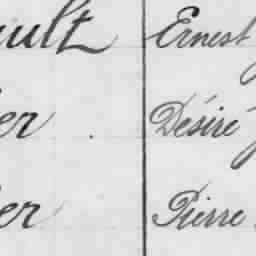 ault Ernest
er Désiré
er Pierre